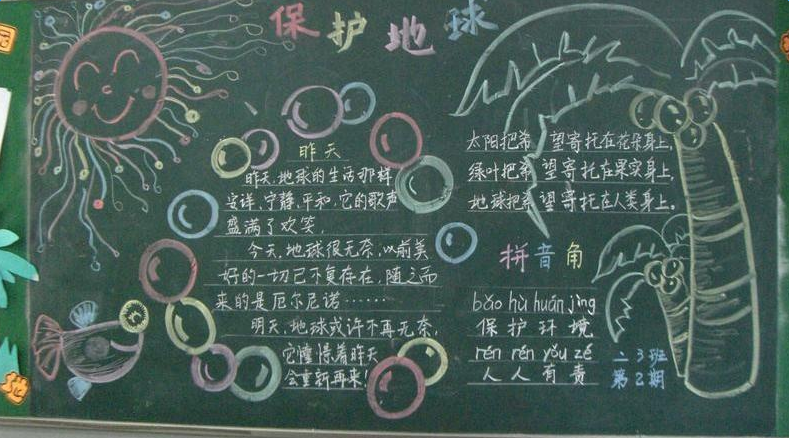 保护地球
昨天
昨天,地球的生活那样
安详、宁静、平和,它的歌声
盛满了欢笑.
今天,地球很无奈,以前美
好的一切已不复存在,随之而
来的是厄尔尼诺……
明天,地球或许不再无奈,
它憧憬着昨天
会重新再来!
太阳把希 望寄托在花朵身上,
绿叶把希 望寄托在果实身上,
地球把希 望寄托在人类身上。
拼音角
bǎo hù huán jìng
保护环境
rén rén yǒu zé
人人有责
二3班
第2期